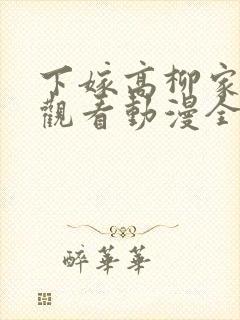 下嫁高柳家
觀看動漫全
醉華華